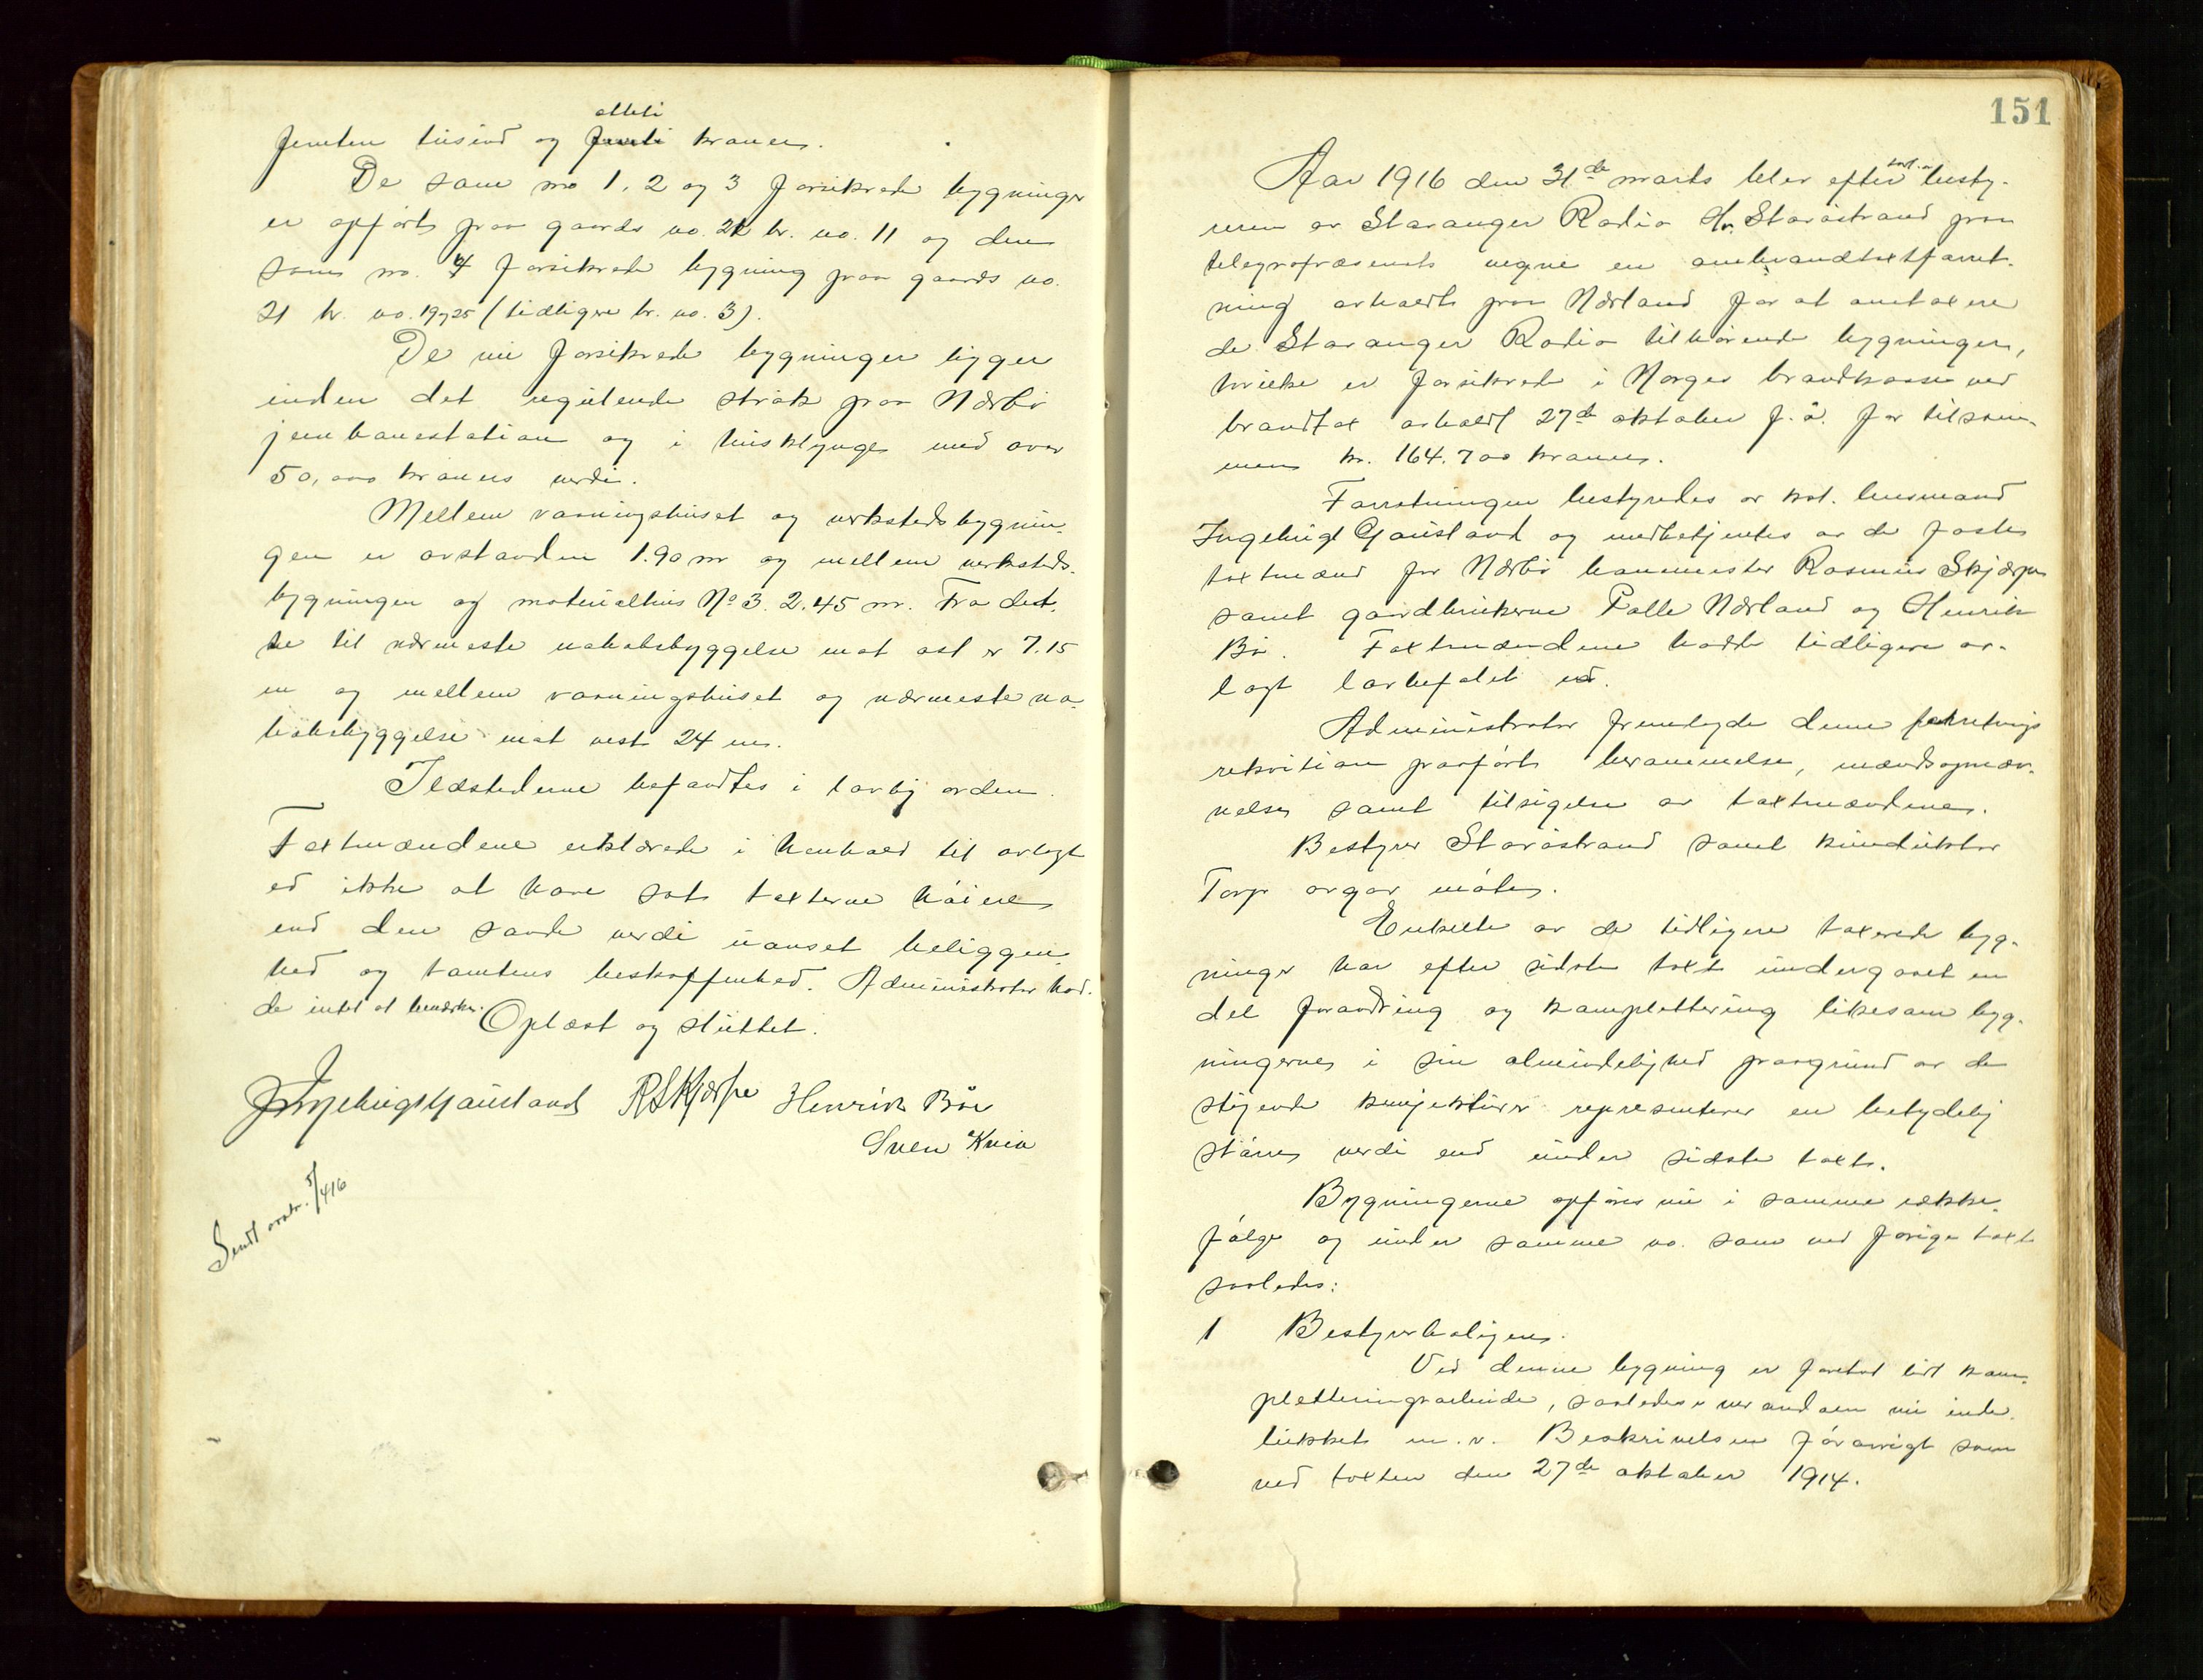 otteti
femten tusind og femti kroner.
De som no 1, 2 og 3 forsikrede bygninger
er opført paa gaards no. 21 br. no. 11 og den
som no. 4 forsikrede bygning paa gaards no.
21 br. no. 19 og 25 (tidligere br. no. 3).
De nu forsikrede bygninger ligger
inden det regulerende strøk paa Nærbø
jernbanestation og i husklynge med over
50,000 kroners verdi.
Mellem vaaningshuset og verkstedsbygnin-
gen er avstanden 1.90 m og mellem verksteds-
bygningen og materialhus No 3. 2.45 m. Fra det-
te til nærmeste nabobebyggelse mot øst er 7.15
m og mellem vaaningshuset og nærmeste na-
bobebyggelse mot vest 24 m.
Ildstederne befandtes i lovlig orden.
Taxtmændene erklærede i henhold til avlagt
ed ikke at have sat taxterne høiere
end den sande verdi uanset beliggen-
hed og tomtens beskaffenhed. Administrator had-
de intet at bemærke. Oplæst og sluttet.
Ingebrigt Gausland RSkjærpe Henrik Bøe
Sven Kvia
Sendt avskr. 5/4 16
151
Aar 1916 den 31de marts blev efter besty-
reren av Stavanger Radio Hr. Starøstrand paa
telegrafvæsenets vegne en ombrandtaxtforret-
ning avholdt paa Nærland for at omtaxere
de Stavanger Radio tilhørende bygninger,
hvilke er forsikrede i Norges brandkasse ved
brandtax avholdt 27de oktober f. å. for tilsam-
men kr. 164.700 kroner.
Forretningen bestyredes av kst. lensmand
Ingebrigt Gausland og medbetjentes av de faste
taxtmænd for Nærbø banemester Rasmus Skjærpe
samt gaardbrukerne Palle Nærland og Henrik
Bø. Taxtmændene hadde tidligere av-
lagt lovbefalet ed.
Administrator fremlagde denne forretnings
rekvisition paaført berammelse, mændsopnæv-
nelse samt tilsigelse av taxtmændene.
Bestyrer Starøstrand samt konduktør
Torp avgav møte.
Enkelte av de tidligere taxerede byg-
ninger har efter sidste taxt undergaaet en
del forandring og komplettering likesom byg-
ningernes i sin almindelighed paagrund av de
stigende konjekturer representerer en betydelig
større verdi end under sidste taxt.
Bygningerne opføres nu i samme række-
følge og under samme no. som ved forrige taxt
saaledes:
1 Bestyrerboligen.
Ved denne bygning er foretat lidt kom-
pletteringsarbeide, saaledes er verandaen nu inde-
lukket m. v. Beskrivelsen forøvrigt som
ved taxten den 27de oktober 1914.